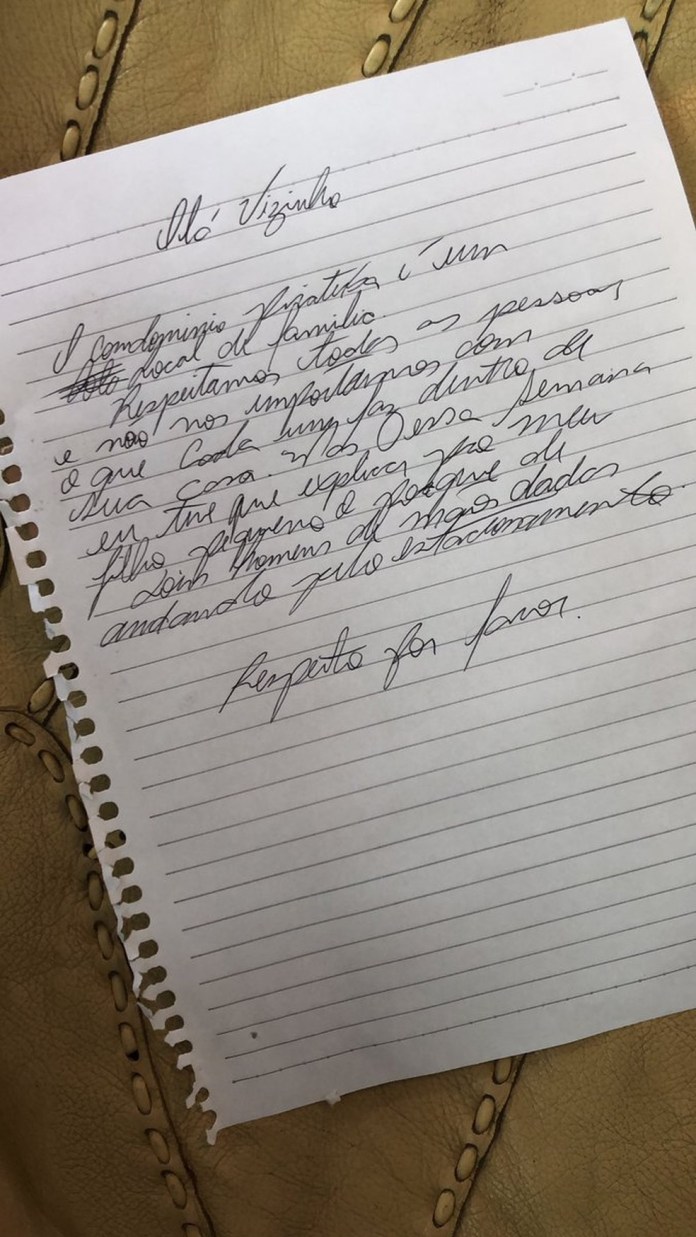 Alô Vizinho
O condominio Piratiba é um
local de familia.
Respeitamos todas as pessoas,
e não nos importamos com
o que cada um faz dentro de
sua casa. Mas essa semana
eu tive que explicar pro meu
filho pequeno o porque de
dois homens de mãos dadas
andando pelo estacionamento.
Respeito por favor.